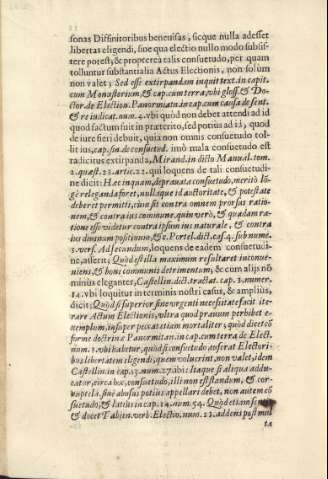 sonas Diffinitoribus beneuisas, sicque nulla adesset
libertas eligendi, sine qua electio nullo modo subsis-
tere potest, & propterea talis consuetudo, per quam
tolluntur substantialia Actus Electionis, non solum
non valet; Sed esse extirpandam inquit text. in capit.
cum Monasterium, & cap. cum terra, vbi gloss. & Do-
ctor. de Election. Panormita in cap. cum causa de sent.
& re iudicat. num. 4. vbi quòd non debet attendi ad id
quod factum fuit in præterito, sed potius ad id, quod
de iure fieri debuit, quia non omnis consuetudo tol-
lit ius, cap. fin. de consuetud. imò mala consuetudo est
radicitus extirpanda, Mirand. in dicto Manual. tom.
2. quæst. 23. artic. 22. qui loquens de tali consuetudi-
ne dicit: Hæc inquam, deprauata consuetudo, meritò lo-
gè releganda foret, nullisque id auctoritate, & potestate
deberet permitti, cum sit contra omnem prorsus ratio-
nem, & contra ius commune. quin verò, & quadam ra-
tione esse videtur contra ipsum ius naturale, & contra
ius diuinum positiuum, &c. Portel. dict. cas. 4. sub num.
3. vers. Ad secundum, loquens de eadem consuetudi-
ne, asserit; Quòd ex illa maximum resultaret inconue-
niens, & boni communis detrimentum; & cum alijs nõ
minùs elegantes, Castellin. dict. tractat. cap. 3. numer.
14. vbi loquitur in terminis nostri casus, & ampliùs,
dicit; Quòd si superior sine vrgenti necessitate facit ite-
rare Actum Electionis, vltra quod prauum perhibet e-
xemplum, insuper peccat etiam mortaliter; quòd dicit cõ-
forme doctrinæ Panormitan. in cap. cum terra de Elect.
num. 3. vbi habetur, quòd si consuetudo auferat Electori-
bus libertatem eligendi, quem voluerint, non valet, idem
Castellin. in cap. 13. num. 27. ibi: Itaque si aliqua addu-
catur, circa hoc, consuetudo, illi non est standum, & cor-
ruptela, siue abusus potius appellari debet, non autem cõ-
suetudo, & latiùs in cap. 14. num. 54. Quòd etiam
& docet Tabien. verb. Electio. num. 23. addens post mul
ta